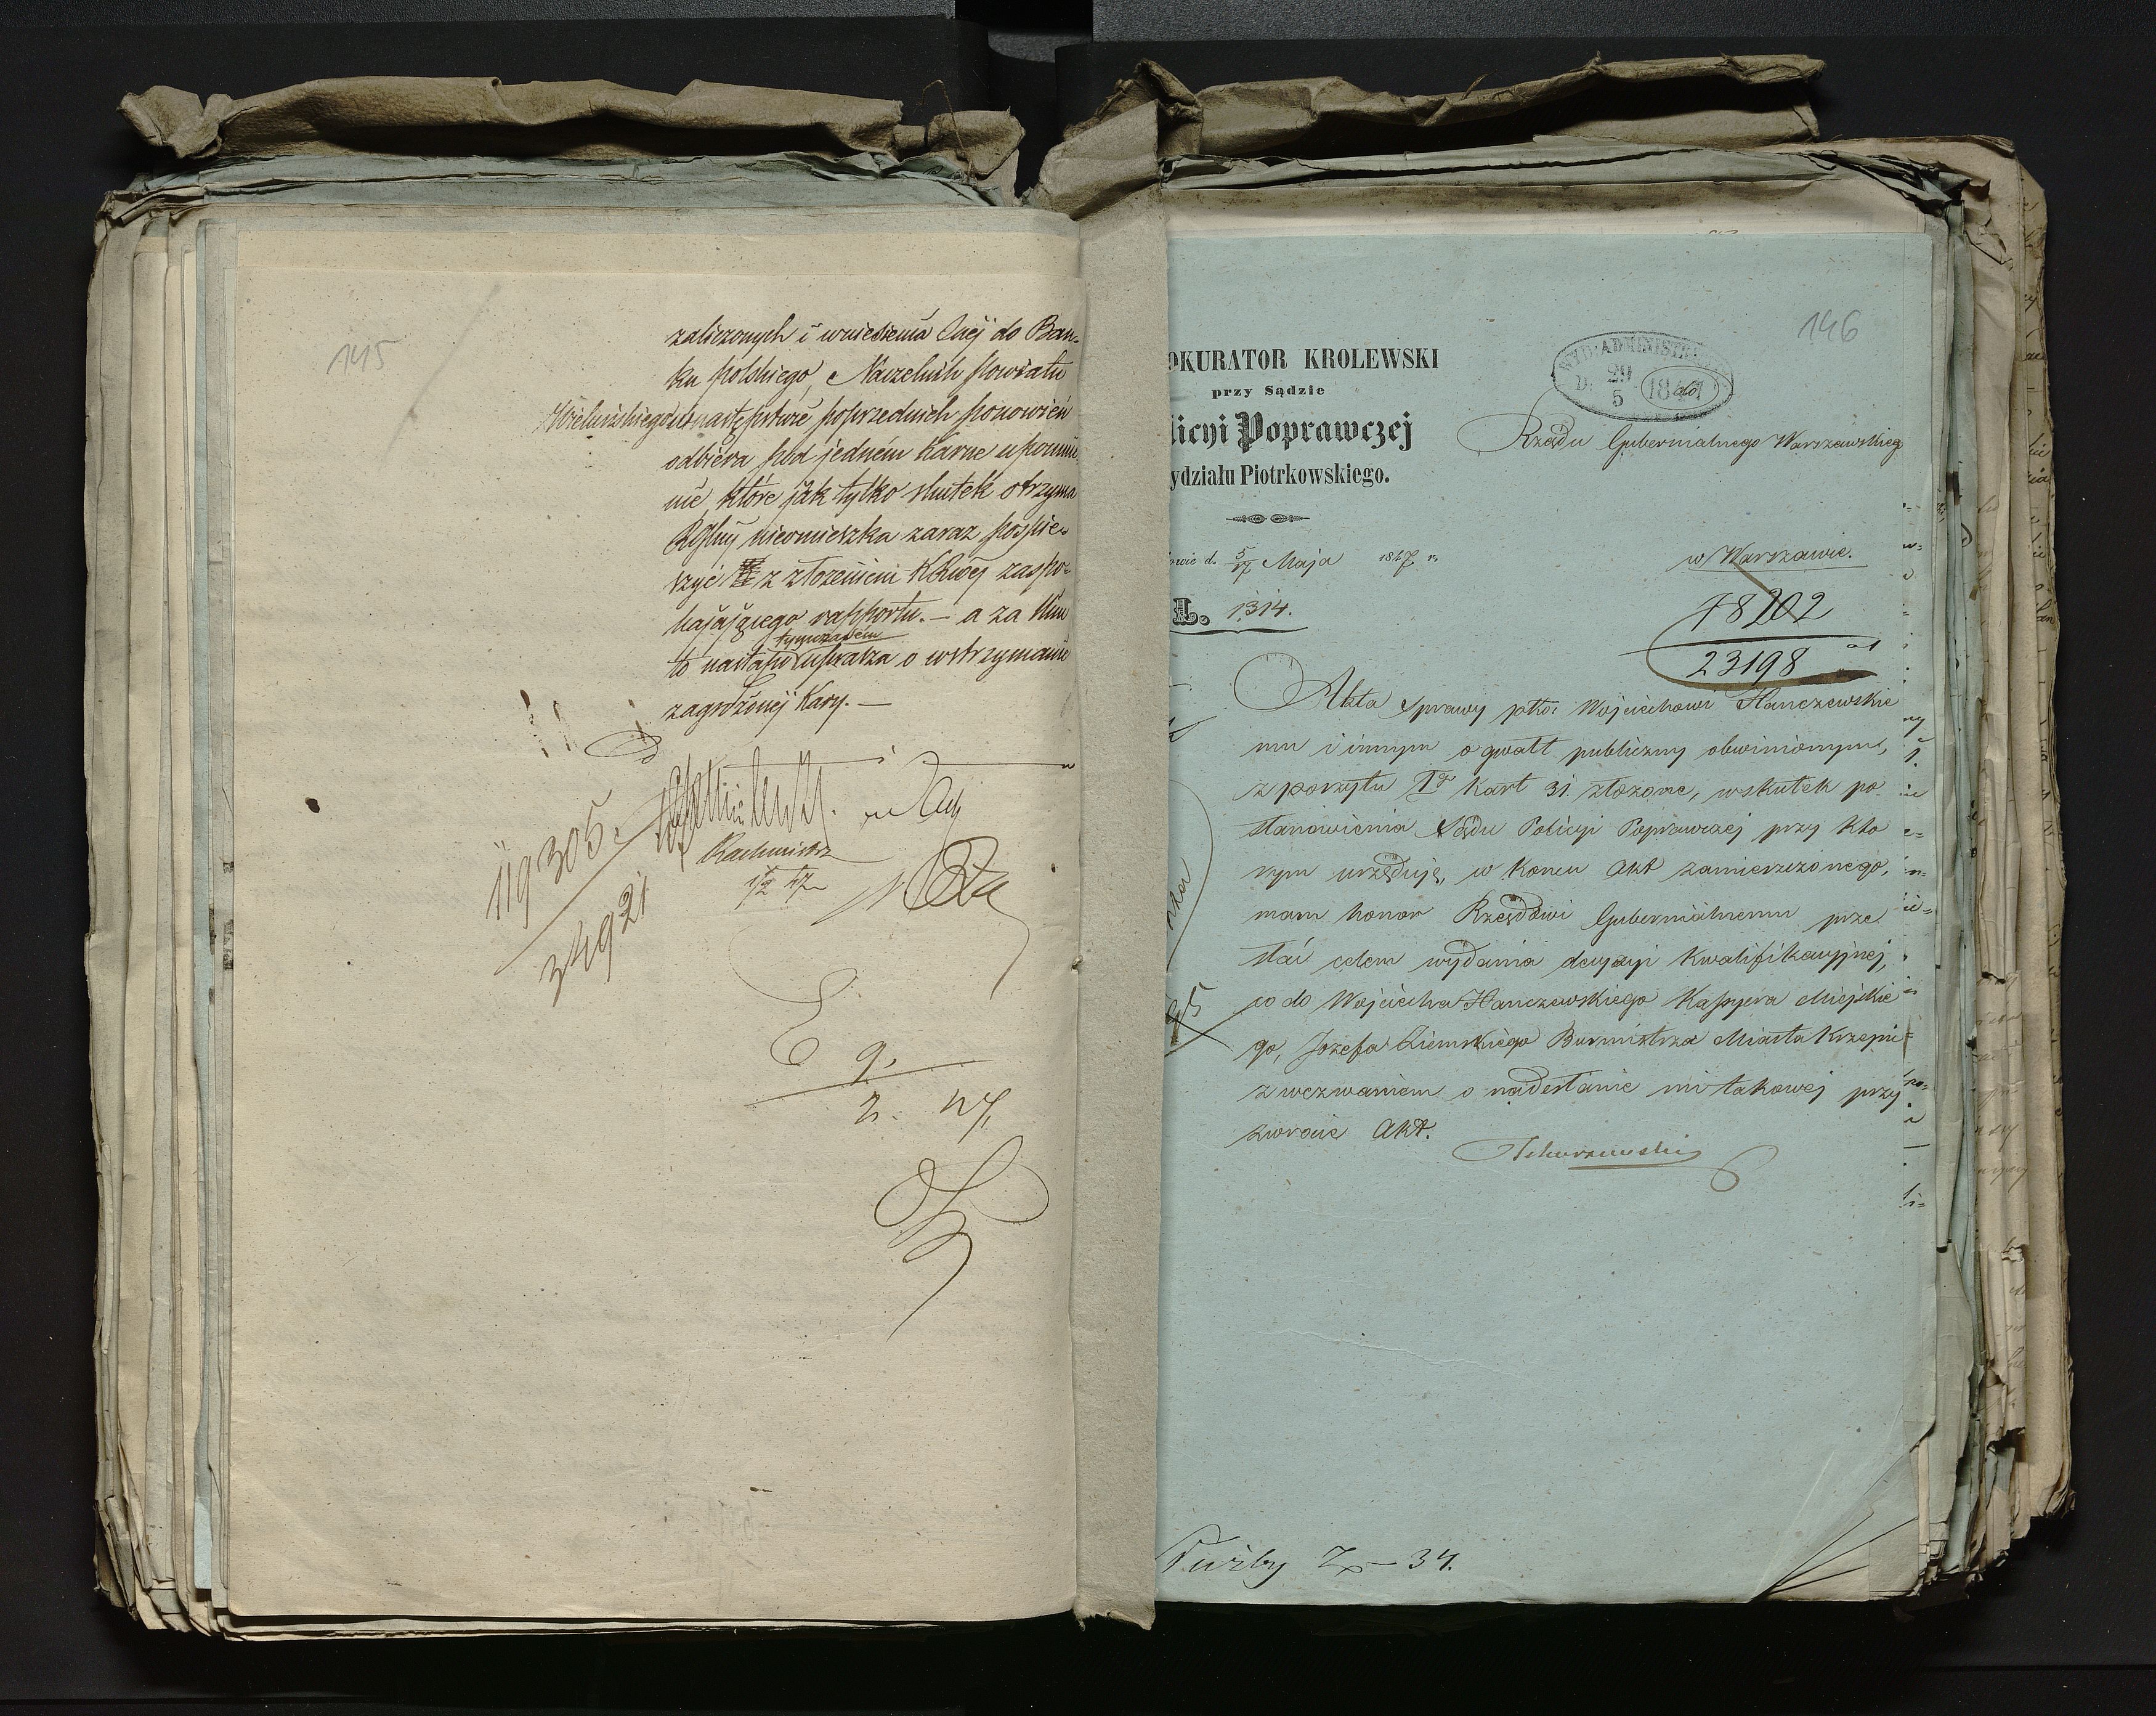 145
zaliczonych i wniesienia Onej do Ban-
ku Polskiego, Naczelnik Powiatu
Wieluńskiego w następstwie poprzednich ponowień
odbiera pod jedném karne upomnie
nie, które jak tylko skutek otrzyma
nieomieszka zaraz pospie-
szyć z złożeniem zaspo-
kajającego rapportu. — a za
to nastąpi uprasza o wstrzymanie
tymczasem
zagrożonej kary. —
119305.
34921
Rachmistrz
9.
2. 47.
146
OKURATOR KROLEWSKI
przy Sądzie
licyi Poprawczej
ydziału Piotrkowskiego.
WYD: ADMINISTR
D. 29 5 1847
do
Rządu Gubernialnego Warszawskieg
w Warszawie.
owie d. 5/17 Maja 1847 r.
L. 1314.
48202
23198
Akta sprawy pko: Wojciechowi Hanczewskie
mu i innym o gwałt publiczny obwinionym,
z poszytu 1go kart 31. złożone, wskutek po
stanowienia Sądu Policyi Poprawczej przy któ
rym urzęduję, w końcu Akt zamieszczonego,
mam honor Rządowi Gubernialnemu prze
słać celem wydania decyzyi kwalifikacyjnej,
co do Wojciecha Hanczewskiego Kassyera Miejskie
go, Józefa Ziemskiego Burmistrza Miasta Krzepic
z wezwaniem o nadesłanie mi takowej przy
zwrocie Akt.
Służby 7 — 34.